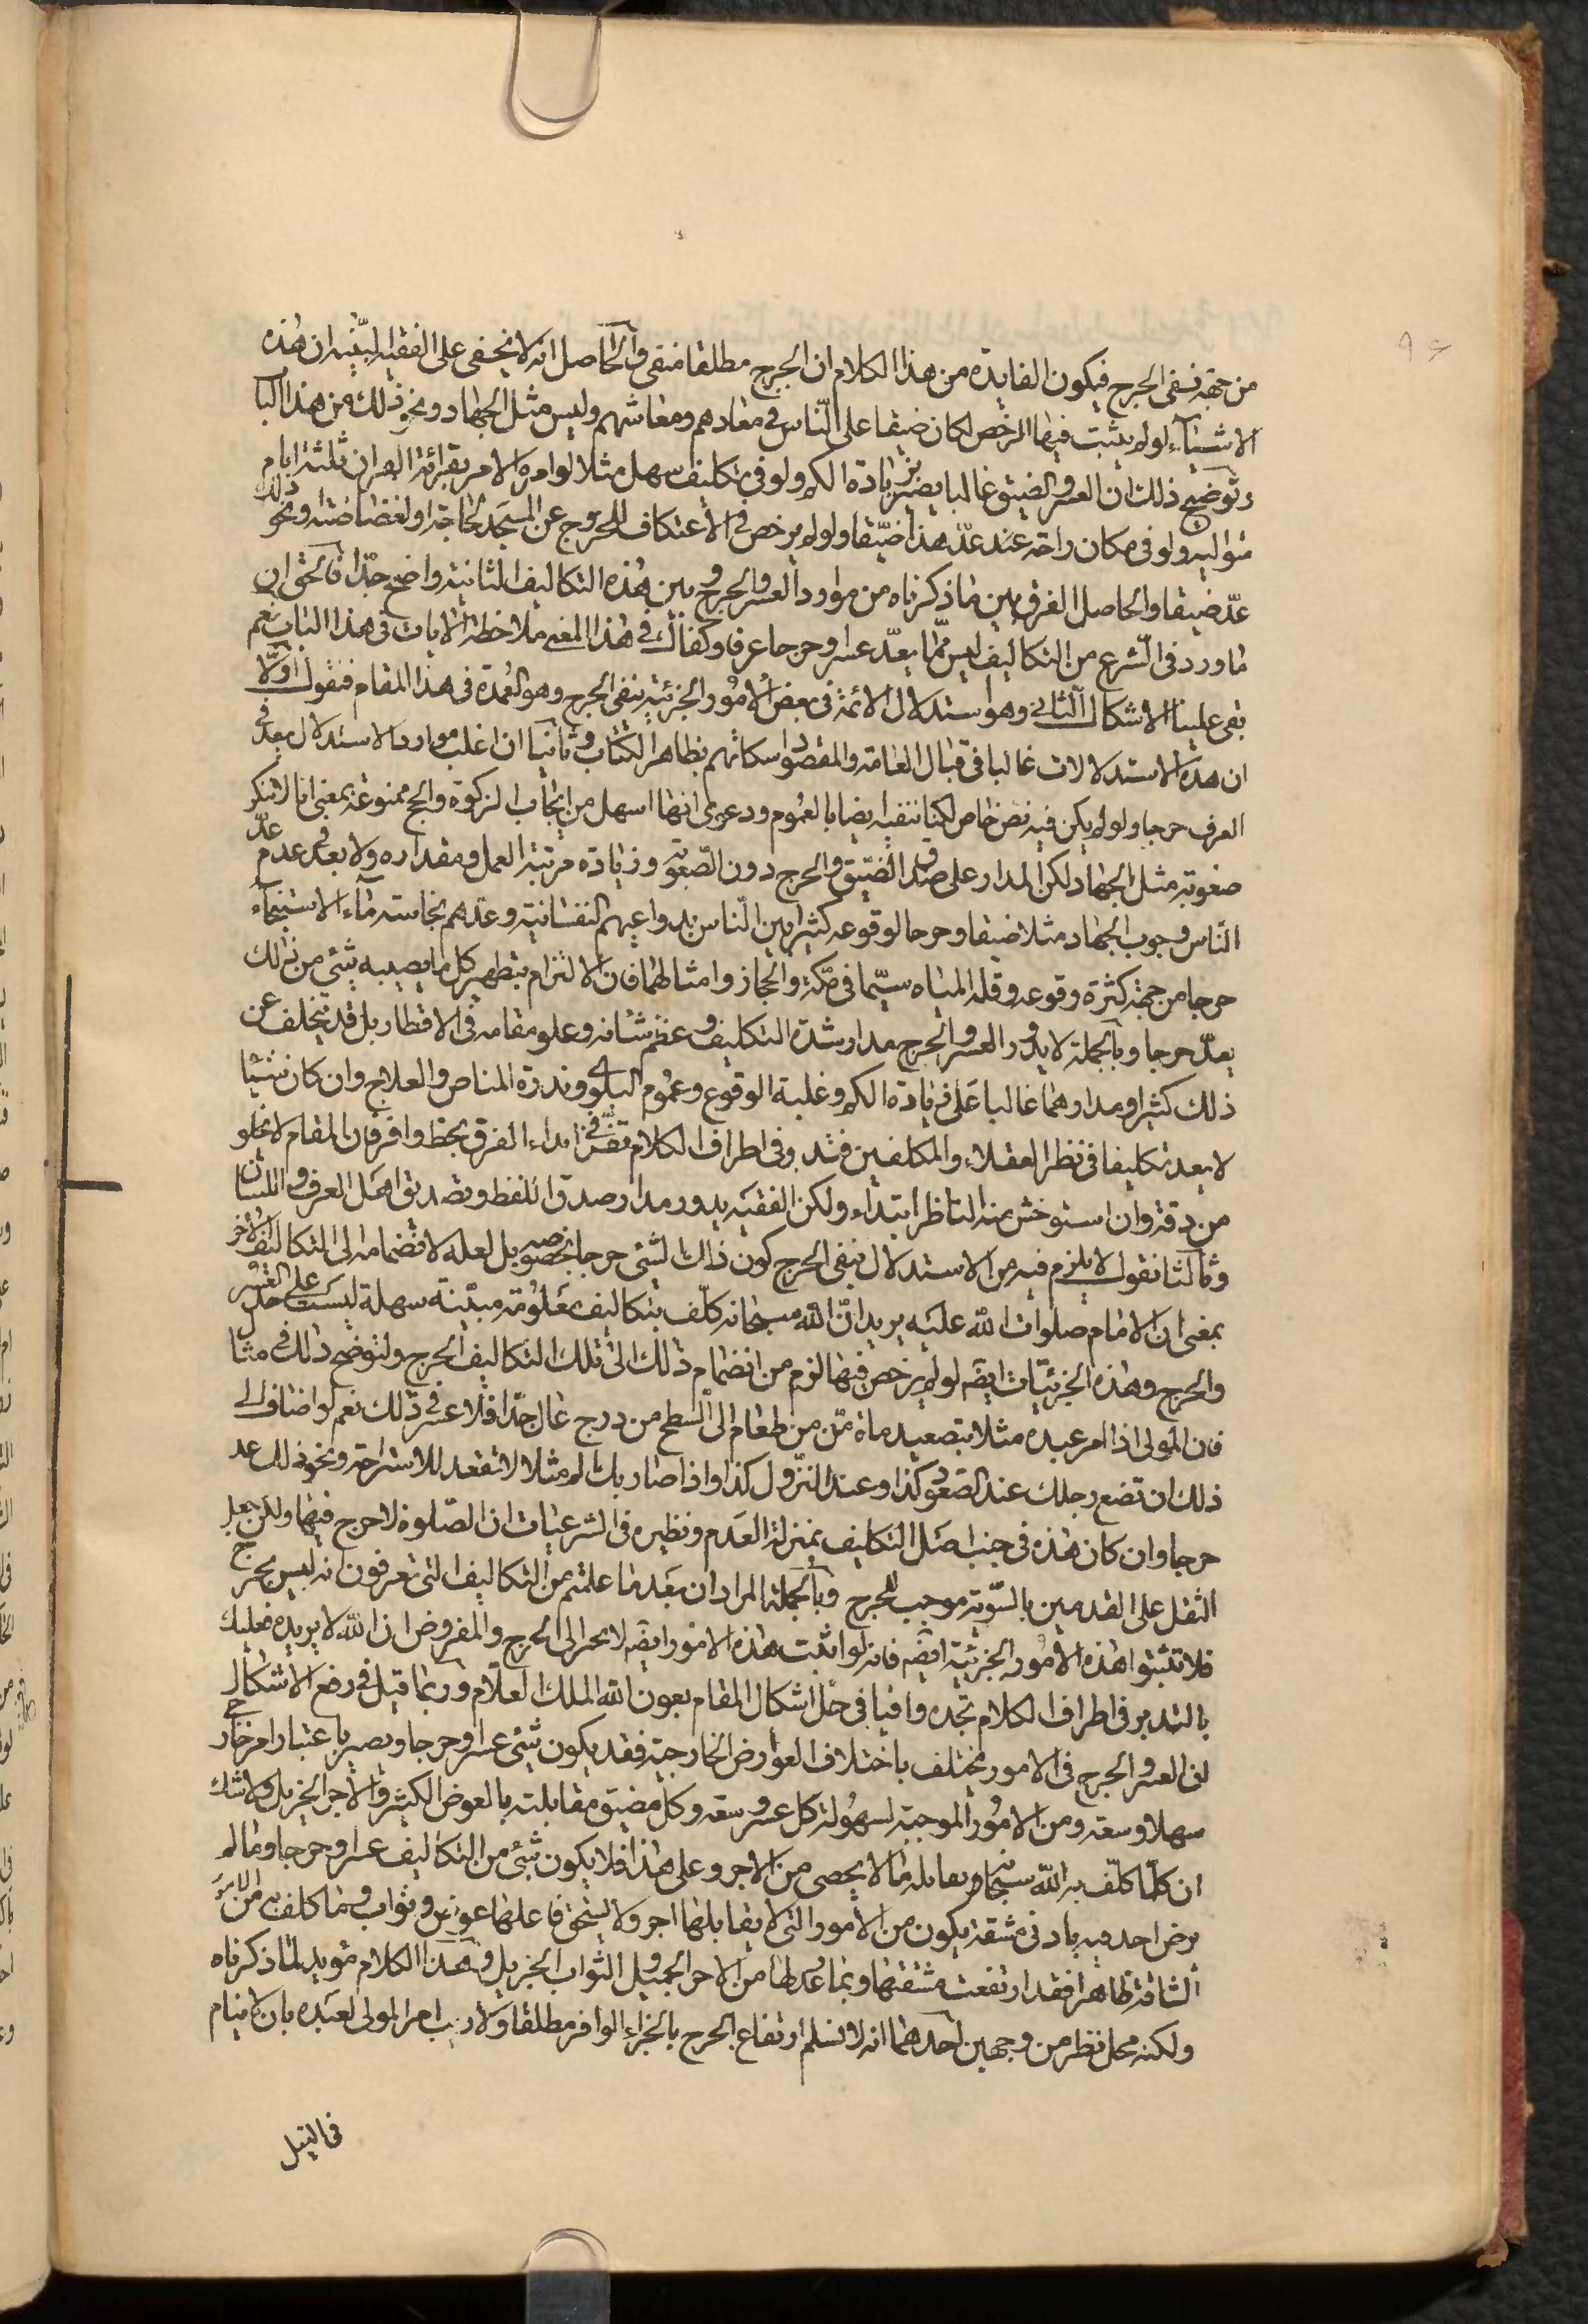 ٩٤
من جهة نفى الحرج فيكون الفايدة من هذا الكلام ان الحرج مطلقا منفى والحاصل انه لا يخفى على الفقيه النبيه ان هذه
الاشياء لو لم يثبت فيها الرخص لكان ضيقا على الناس فى معادهم ومعاشهم وليس مثل الجهاد ونحو ذلك من هذا الباب
وتوضيح ذلك ان العسر والضيق غالبا يصير بزيادة الكم ولو فى تكليف سهل مثلا لو امره الامر بقرائة القران ثلثة ايام
متوالية ولو فى مكان راحة عند عدّ هذا ضيقا ولو لم يرخص فى الاعتكاف للخروج عن المسجد لحاجة او لغضاضته ونحو ذلك
عدّ ضيقا والحاصل الفرق بين ما ذكرناه من موارد العسر والحرج وبين هذه التكاليف الثانية واضح جدّا فالحق ان
ما ورد فى الشرع من التكاليف ليس مما يعدّ عسرا وحرجا عرفا وكفاك فى هذا المعنى ملاحظة الايات فى هذا الباب نعم
بقى علينا الاشكال الثانى وهو استدلال الائمة فى بعض الامور الجزئية بنفى الحرج وهو العمدة فى هذا المقام فنقول اولا
ان هذه الاستدلالات غالبا فى قبال العامة والمقصود اسكاتهم بظاهر الكتاب وثانيا ان اغلب موارد الاستدلال يعد فى
العرف حرجا ولو لم يكن فيه نص خاص لكنا ننفيه ايضا بالعموم ودعوى انها اسهل من ايجاب الزكوة والحج ممنوعة بمعنى انا لا ننكر
صعوبة مثل الجهاد لكن المدار على صدق الضيق والحرج دون الصعوبة وزيادة مرتبة العمل ومقداره ولا بعد فى عدم عدّ
الناس وجوب الجهاد مثلا ضيقا وحرجا لوقوعه كثيرا بين الناس بدواعيهم النفسانية وعدهم نجاسة ماء الاستنجاء
حرجا من جهة كثرة وقوعه وقلة المياه سيّما فى مكة والحجاز وامثالهما فان الالتزام بتطهير كل ما يصيبه شئ من ذلك
يعدّ حرجا وبالجملة لا يدور العسر والحرج مدار شدة التكليف وعظم شانه وعلو مقامه فى الاقطار بل قد يتخلف عن
ذلك كثيرا ومدارهما غالبا على زيادة الكم وغلبة الوقوع وعموم البلوى وندرة المناص والعلاج وان كان شيئا
لا يعد تكليفا فى نظر العقلاء والمكلفين فتدبر فى اطراف الكلام تفز فى ابداء الفرق بحظ وافر فان المقام لا يخلو
من دقة وان استوحش منه الناظر ابتداء ولكن الفقيه يدور مدار صدق اللفظ وتصديق اهل العرف واللسان
وثالثا نقول لا يلزم فيه من الاستدلال بنفى الحرج كون ذلك الشئ حرجا بخصوصه بل لعله لانضمامه الى التكاليف الاخر
بمعنى ان الامام صلوات الله عليه يريد انّ الله سبحانه كلّف بتكاليف معلومة مبيّنة سهلة ليست على حد العسر
والحرج وهذه الجزئيّات ايضه لو لم يرخص فيها لزم من انضمام ذلك الى تلك التكاليف الحرج ولنوضح ذلك فى مثال
فان المولى اذا امر عبده مثلا بتصعيد ماة منّ من طعام الى السطح من درج عال جدّا فلا عسر فى ذلك نعم لو اضاف الى
ذلك ان تضع رجلك عند الصعود كذا وعند النزول كذا واذا صار بك الم مثلا لا تقعد للاستراحة ونحو ذلك عد
حرجا وان كان هذه فى جنب اصل التكاليف بمنزلة العدم ونظيره فى الشرعيات ان الصلوة لا حرج فيها ولكن جعل
الثقل على القدمين بالسّوية موجب للحرج وبالجملة المراد ان بعد ما علمتم من التكاليف التى تعرفون انه ليس بحرج
فلا تثبتوا هذه الامور الجزئية ايضه فانه لو اثبت هذه الامور ايضه لانجر الى الحرج والمفروض ان الله لا يريده فعليك
بالتدبر فى اطراف الكلام تجده وافيا فى حل اشكال المقام بعون الله الملك العلّام وربما قيل فى رفع الاشكال
ان العسر والحرج فى الامور مختلف باختلاف العوارض الخارجية فقد يكون شئ عسرا وحرجا ويصير باعتبار امر خارجى
سهلا وسعة ومن الامور الموجبة لسهولة كل عسر وسعة وكل مضيق مقابلته بالعوض الكثير والاجر الجزيل ولا شك
ان كلّما كلّف به الله سبحانه يقابله ما لا يحصى من الاجر وعلى هذا فلا يكون شئ من التكاليف عسرا وحرجا وما لم
يرض احد فيه بادنى مشقة يكون من الامور التى لا يقابلها اجر ولا يستحق فاعلها عوض وثواب وما كلف به من الامور
الشاقة ظاهرا فقد ارتفعت مشقتها وبما وعد لها من الاجر الجميل والثواب الجزيل وهذا الكلام مؤيد لما ذكرناه
ولكنه محل نظر من وجهين احدهما انه لا نسلم ارتفاع الحرج بالجزاء الوافر مطلقا ولا ريب امر المولى لعبده بان لا ينام
فى الليل